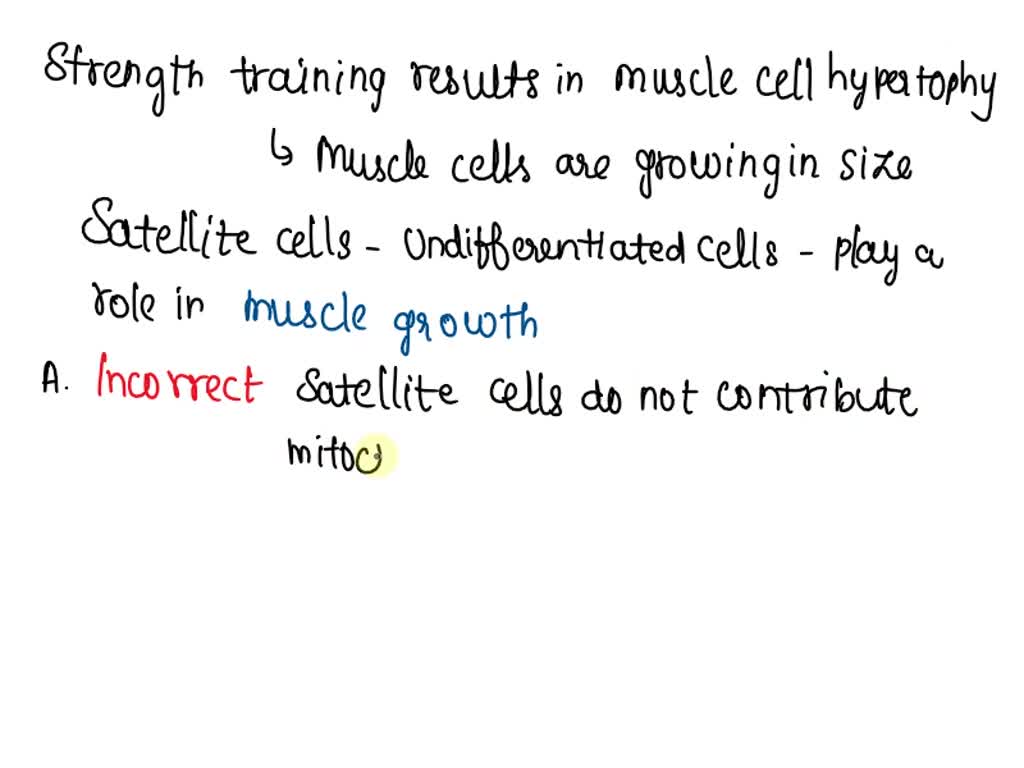 Strength training results in muscle cell hypertophy
↳ Muscle cells are growing in size
Satellite cells - Undifferentiated cells - play a
role in muscle growth
A. Incorrect Satellite cells do not contribute
mitoc